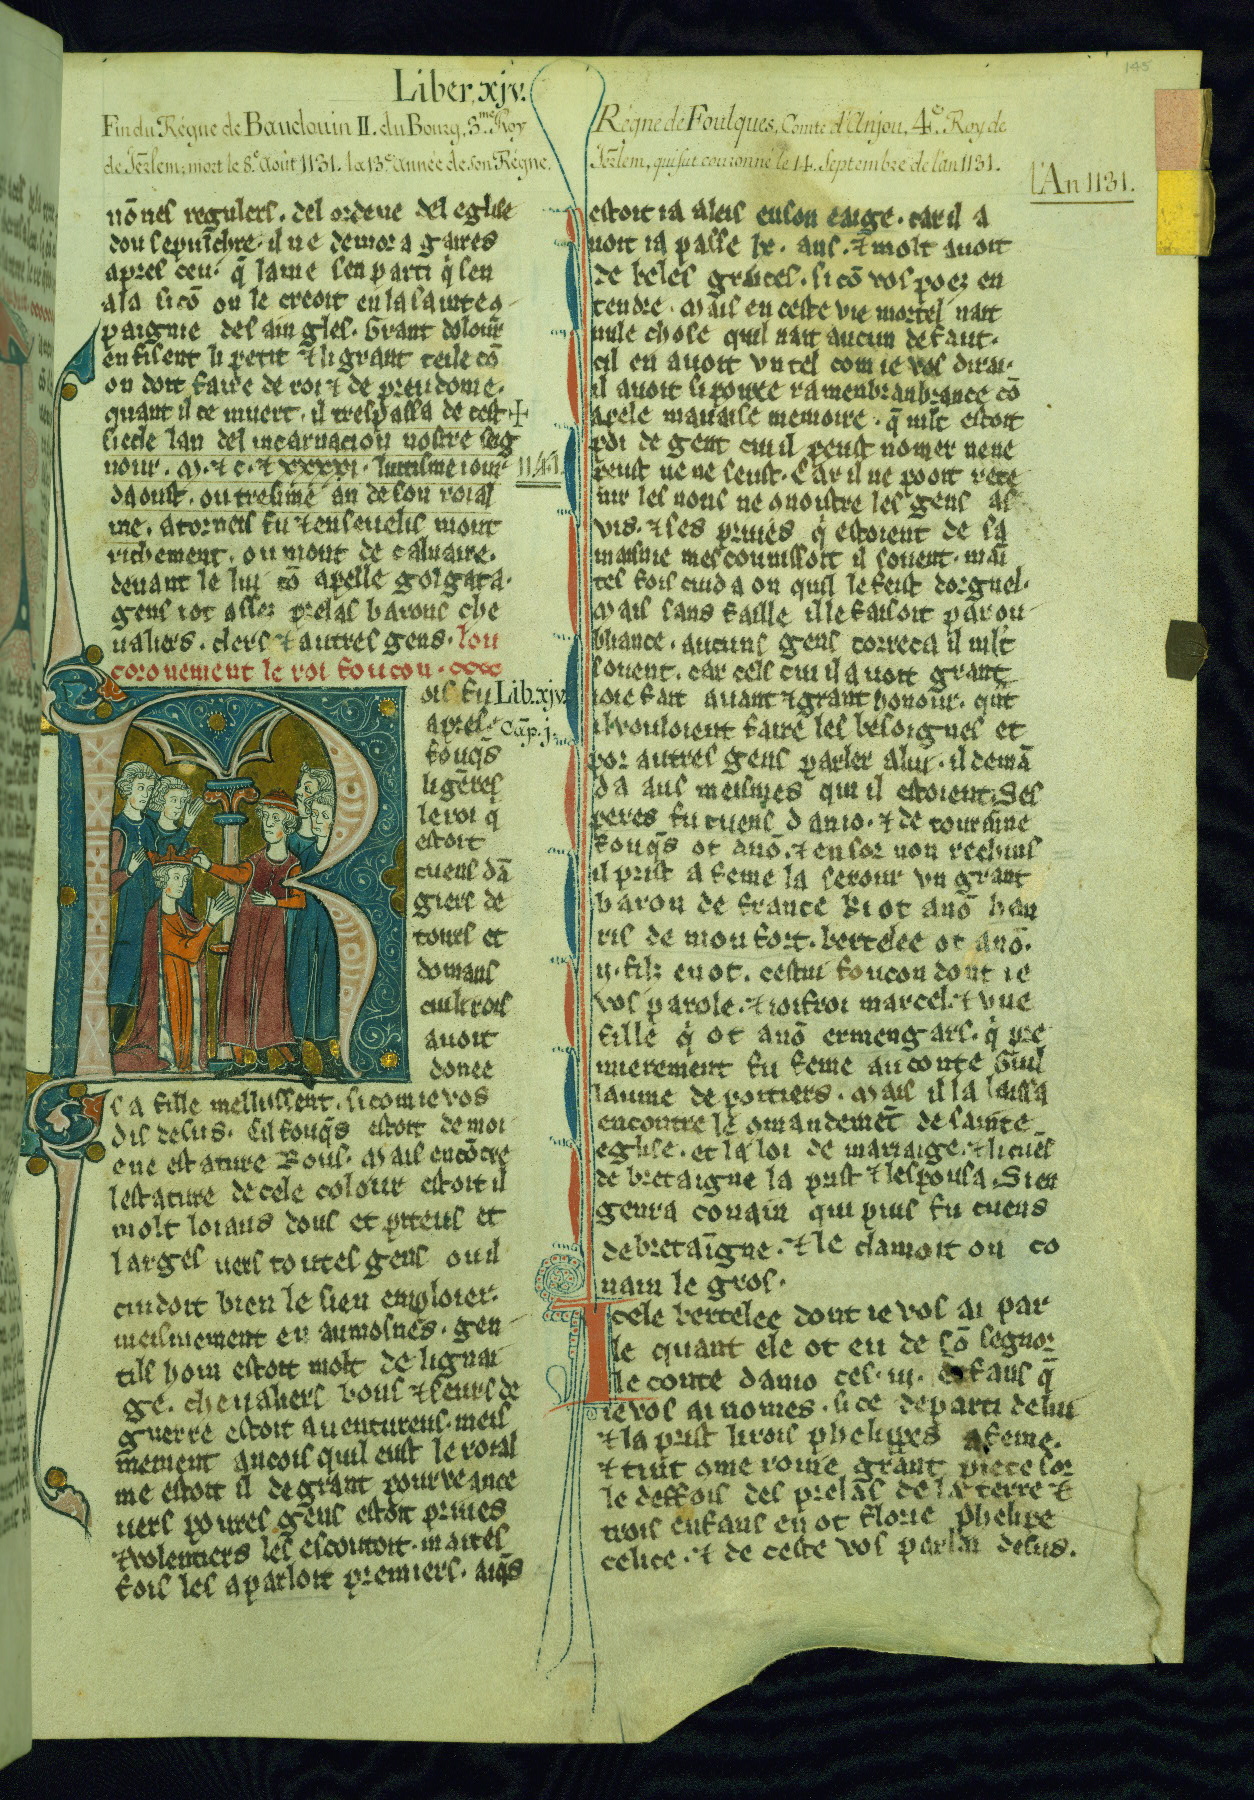 145
Liber, xjv.
Fin du Régne de Baudouin II. du Bourg, 3.me Roy
de Jérlem; mort le 8.e Août 1131. la 13.e année de son Régne.
Régne de Foulques, Comte d'Anjou, 4.e Roy de
Jérlem, qui fut couronné le 14. Septembre de l'an 1131.
l'An 1131.
nōnes regulers. del ordene del eglise
dou sepulchre. il ne demora gaires
apres ceu. q̄ lame sen parti q̇ sen
ala si cō on le creoit en la sainte cō
paignie des aingles. Grant dolour
en fisent li petit ⁊ li grant teile cō
on doit faire de roi ⁊ de preudome.
quant il ce muert. il trespassa de cest +
siecle lan del incarnacion nostre seig
nour. m. ⁊ c. ⁊ xxxxi. luitisme iour
1141.
daoust. ou tresime an de son roial
me. atorneis fu ⁊ enseuelis mout
richement. ou mont de caluaire.
deuant le lui cō apelle golgata.
gens iot assez prelas barons che
ualiers. clers ⁊ autres gens. lou
coronement le roi foucon. cxxx
ois fu
apres
fouq̄s
li gēres
le roi q̇
estoit
cuens dā
giers de
tours et
domans
cui li rois
auoit
donee
Lib. xjv.
Cap. j.
sa fille mellissent. si com ie vos
dis desus. Cil fouq̄s estoit de moi
ene estature Rous. mais encōtre
lestature de cele colour estoit il
molt loiaus dous et piteus et
larges uers toutes gens ou il
cuidoit bien le sien emploier.
meismement en aumosnes. gen
tils hom estoit molt de lignai
ge. cheualiers bons ⁊ seurs de
guerre estoit auentureus. meis
mement ancois quil eust le roial
me estoit il de grant pourueance
uers poures gens estoit priues
⁊ volentiers les escoutoit. maites
fois les aparloit premiers. aiq̄s
estoit ia aleis en son eaige. car il a
uoit ia passe lx. ans. ⁊ molt auoit
de beles graices. si cō vos poez en
tendre. mais en ceste vie mortel nait
nule chose quil nait aucun defaut.
cil en auoit vn tel com ie vos dirai.
il auoit si poure ramenbranbrance cō
apele mauaise memoire. q̄ nilt estoit
poi de gent cui il peust nomer ne ne
peust ne ne seust. Car il ne pooit rete
nir les nons ne conoistre les gens as
vis. ⁊ ses priues q̇ estoient de sa
maisnie mesconnissoit il souent. mai
tes fois cuida on quil le feist dorguel.
mais sans faille il le faisoit par ou
bliance. aucuns gens correca il mlt
souent. car cels cui il auoit grant
ioie fait auant ⁊ grant honour. qn̄t
il vouloient faire les besoignes et
por autres gens parler a lui. il demā
da aus meismes qui il estoient. Ses
peres fu cuens daniō. ⁊ de touraine
fouq̄s ot anō. ⁊ en sor non rechins
il prist a feme la serour vn grant
baron de france ki ot anō hen
ris de monfort. bertelee ot anō.
ij. filz en ot. cestui foucon dont ie
vos parole. ⁊ ioifroi marcel. ⁊ vne
fille q̇ ot anō ermengars. q̇ pre
mierement fu feme au conte guil
laume de poitiers. mais il la laissa
encontre le cōmandemēt de sainte
eglise. et la loi de mariaige. ⁊ li cuens
de bretaigne la prist ⁊ lespousa. Si en
genra conain qui puis fu cuens
de bretaigne. ⁊ le clamoit on co
nain le gros.
Icele bertelee dont ie vos ai par
le quant ele ot eu de sō segnor
le conte danio ces. iii. enfans q̄
ie vos ai nomes. si ce departi de lui
⁊ la prist li rois phelippes a feme.
⁊ tint cōme roine grant piece sor
le deffois des prelas de la terre ⁊
trois enfans en ot florie phelipe
celice. ⁊ de ceste vos parlai desus.